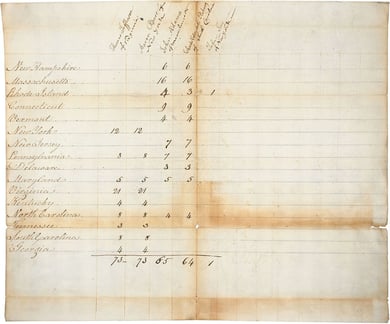 Thomas Jefferson
of Virginia
Aaron Burr of
New York
John Adams
of
New Hampshire 6 6
Massachusetts 16 16
Rhode Island 4 3 1
Connecticut 9 9
Vermont 4 4
New York 12 12
New Jersey 7 7
Pennsylvania 8 8 7 7
Delaware 3 3
Maryland 5 5 5 5
Virginia 21 21
Kentucky 4 4
North Carolina 8 8 4 4
Tennessee 3 3
South Carolina 8 8
Georgia 4 4
73 73 65 64 1